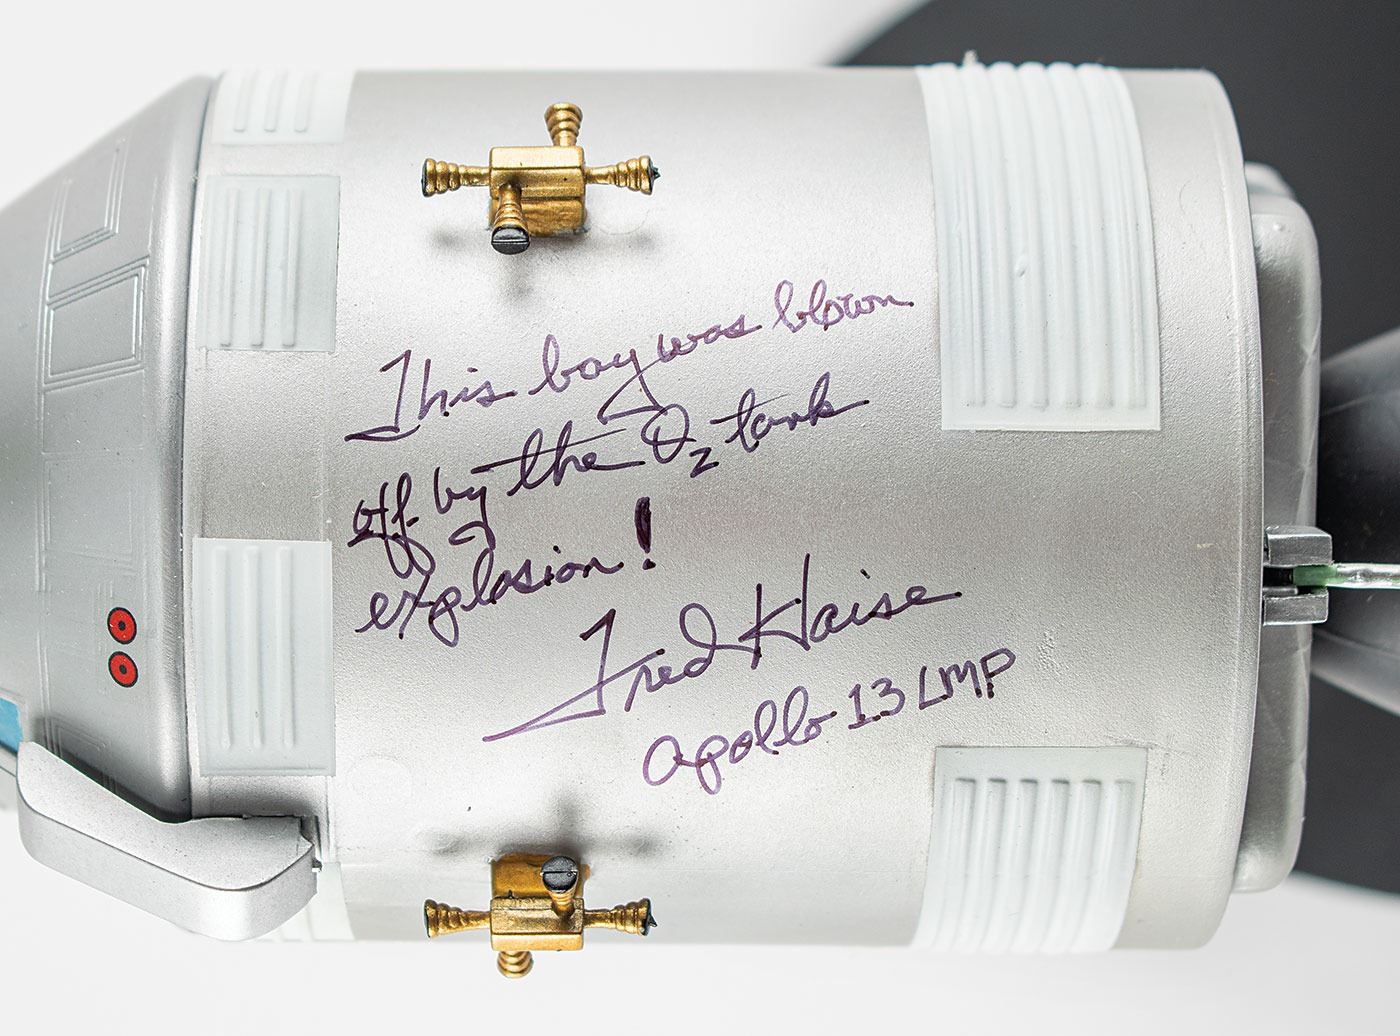 This bay was blown
off by the O₂ tank
explosion!
Fred Haise
Apollo 13 LMP